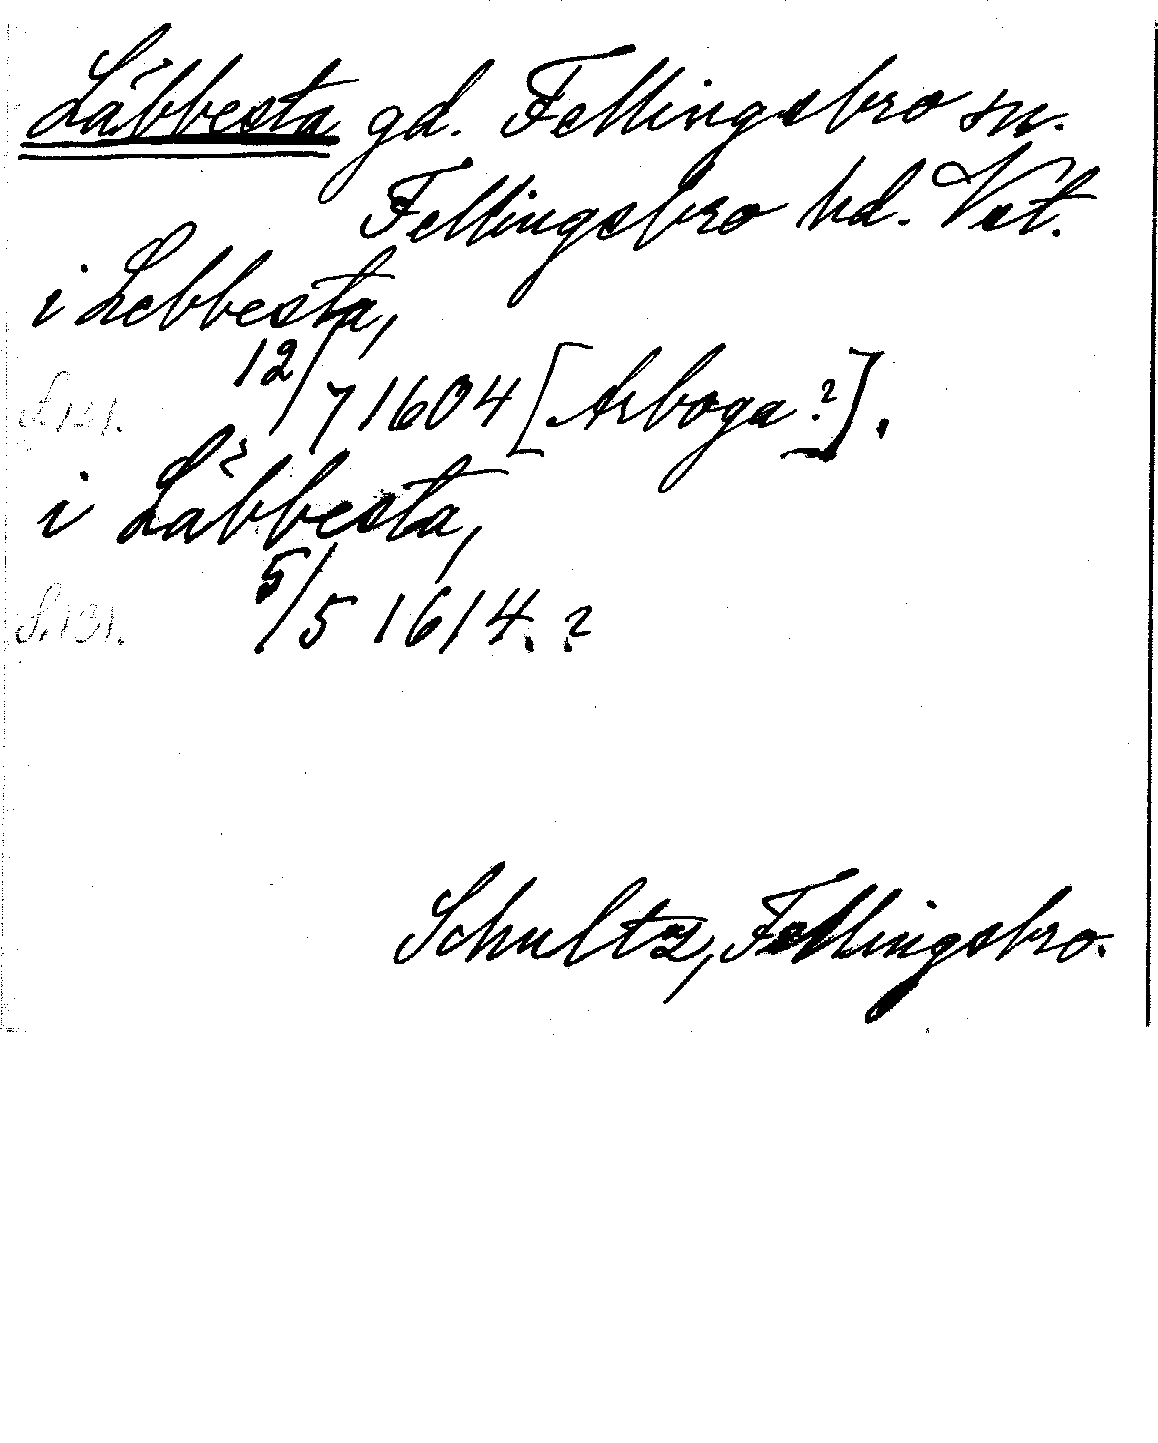 Läbbesta gd. Fellingsbro sn.
Fellingsbro hd. Vst.
i Lebbesta,
12/7 1604 [Arboga?].
i Läbbesta,
5/5 1614.?
S. 131.
Schultz, Fellingsbro.